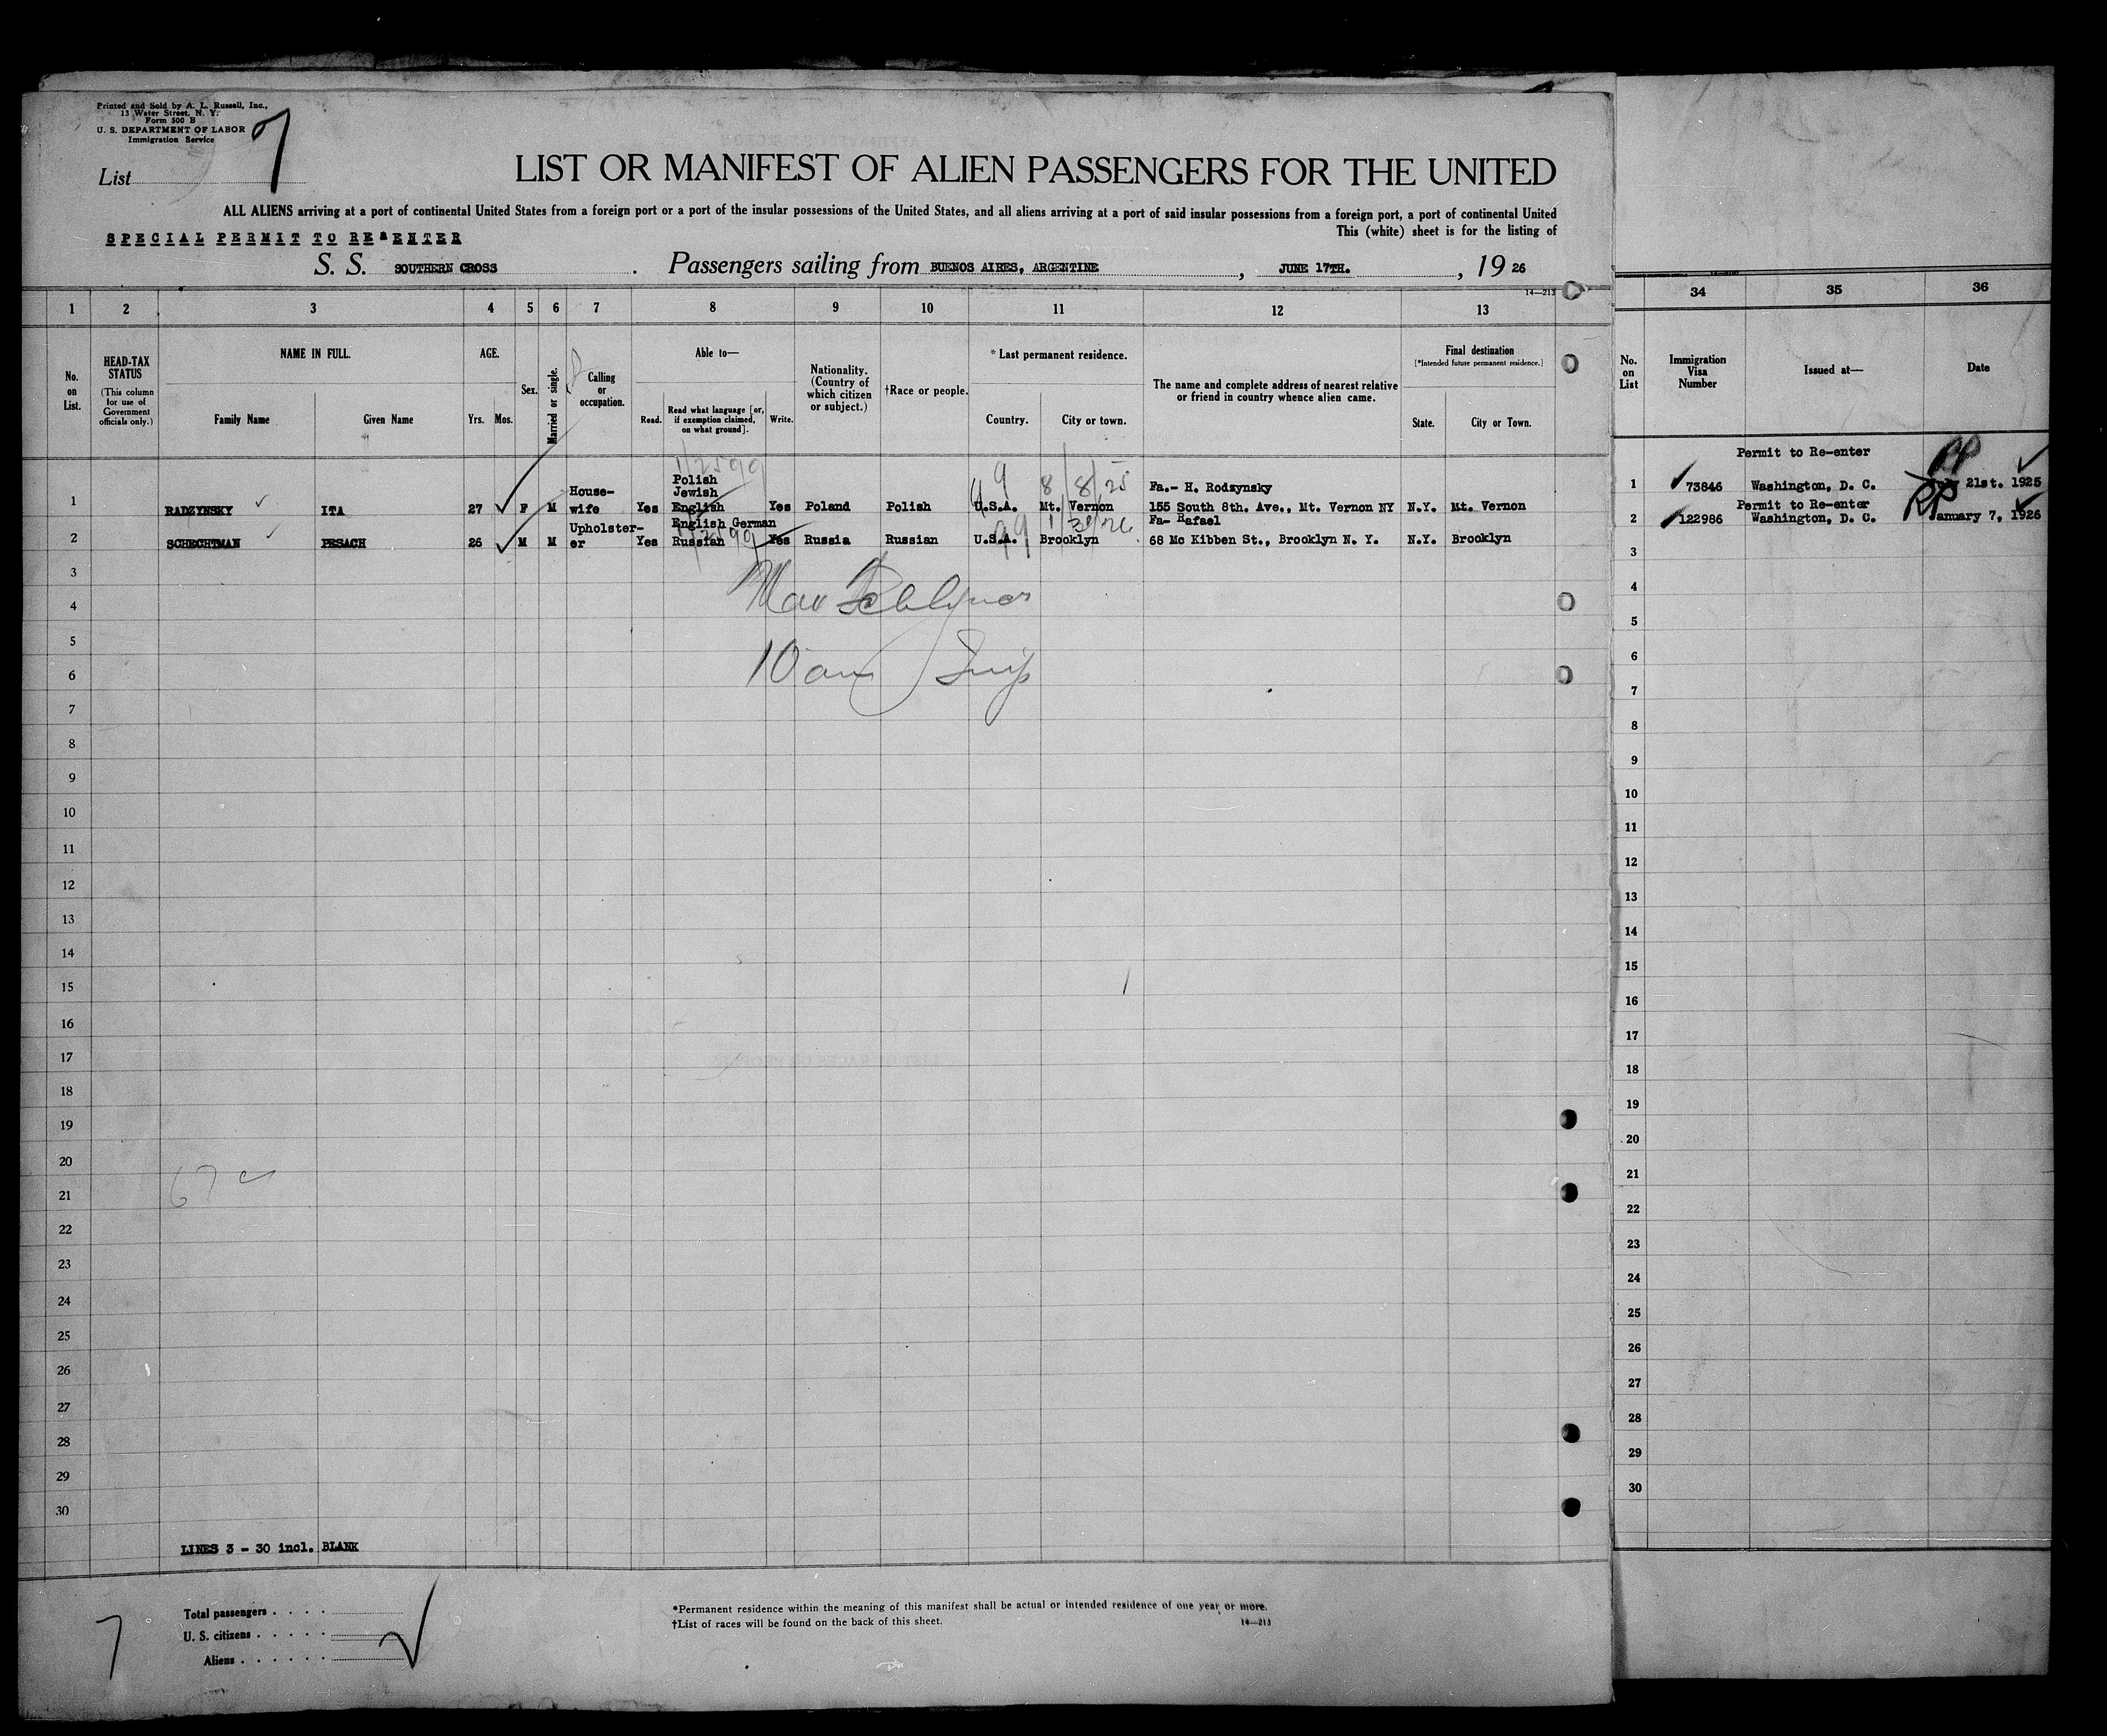 Printed and Sold by A. L. Russell, Inc.,
13 Water Street, N. Y.
Form 500 B
U. S. DEPARTMENT OF LABOR
Immigration Service
List 7
LIST OR MANIFEST OF ALIEN PASSENGERS FOR THE UNITED
ALL ALIENS arriving at a port of continental United States from a foreign port or a port of the insular possessions of the United States, and all aliens arriving at a port of said insular possessions from a foreign port, a port of continental United
This (white) sheet is for the listing of
SPECIAL PERMIT TO RE-ENTER
S. S. SOUTHERN CROSS . Passengers sailing from BUENOS AIRES, ARGENTINE , JUNE 17TH. , 19 26
14—213
1 2 3 4 5 6 7 8 9 10 11 12 13 34 35 36
No. on List.
HEAD-TAX STATUS
(This column for use of Government officials only.)
NAME IN FULL.
Family Name Given Name
AGE.
Yrs. Mos.
Sex.
Married or single.
Calling or occupation.
Able to—
Read. Read what language [or, if exemption claimed, on what ground]. Write.
Nationality. (Country of which citizen or subject.)
†Race or people.
* Last permanent residence.
Country. City or town.
The name and complete address of nearest relative or friend in country whence alien came.
Final destination
[*Intended future permanent residence.]
State. City or Town.
No. on List
Immigration Visa Number
Issued at—
Date
1/2599
9 8/8/25
Polish
Jewish
House- Fa.- H. Rodzynsky Permit to Re-enter
1 RADZYNSKY ITA 27 F M wife Yes English Yes Poland Polish U.S.A. Mt. Vernon 155 South 8th. Ave., Mt. Vernon NY N.Y. Mt. Vernon 1 73846 Washington, D. C. July 21st. 1925
Upholster- English German Fa- Rafael Permit to Re-enter
2 SCHECHTMAN PESACH 26 M M er Yes Russian Yes Russia Russian U.S.A. Brooklyn 68 Mc Kibben St., Brooklyn N. Y. N.Y. Brooklyn 2 122986 Washington, D. C. January 7, 1926
3 3
4 4
5 5
10 am
6 6
7 7
8 8
9 9
10 10
11 11
12 12
13 13
14 14
15 15
16 16
17 17
18 18
19 19
20 20
21 21
22 22
23 23
24 24
25 25
26 26
27 27
28 28
29 29
30 30
LINES 3 - 30 incl. BLANK
7
Total passengers . . . .
U. S. citizens . . . . .
Aliens . . . . . .
*Permanent residence within the meaning of this manifest shall be actual or intended residence of one year or more.
†List of races will be found on the back of this sheet.
14—213